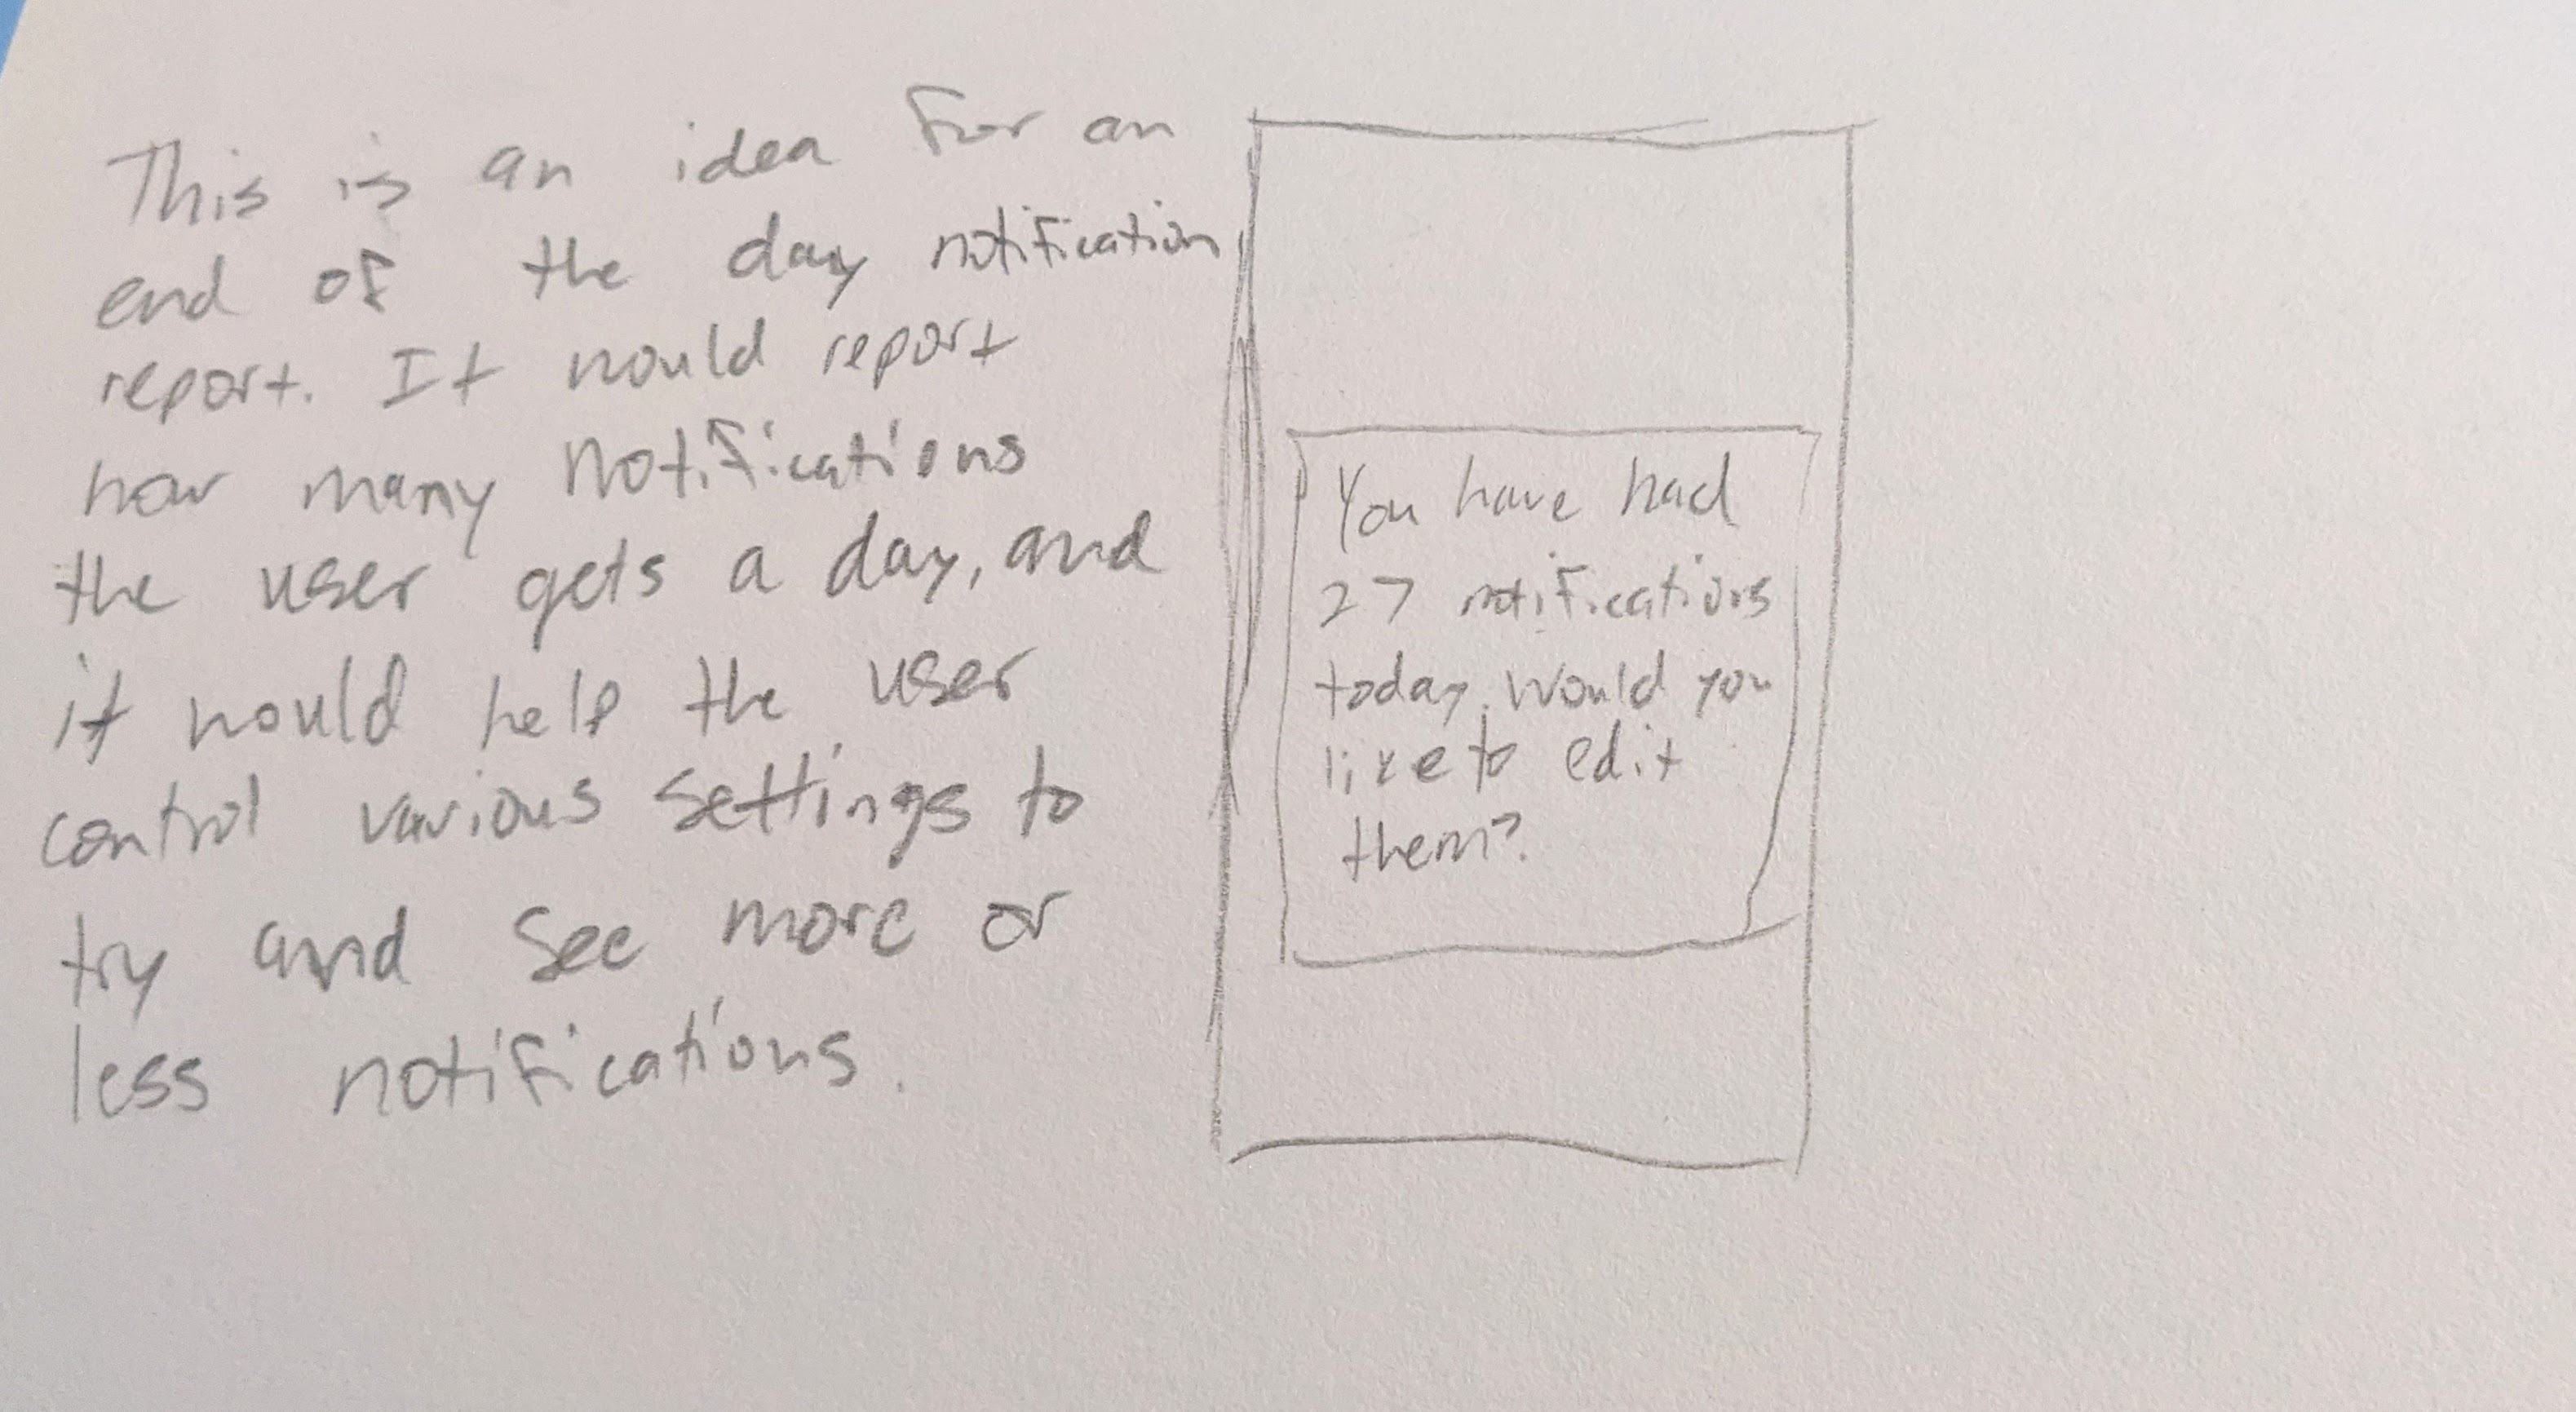 This is an idea for an
end of the day notification
report. It would report
how many notifications
the user gets a day, and
it would help the user
control various settings to
try and see more or
less notifications.
You have had
27 notifications
today. Would you
like to edit
them?